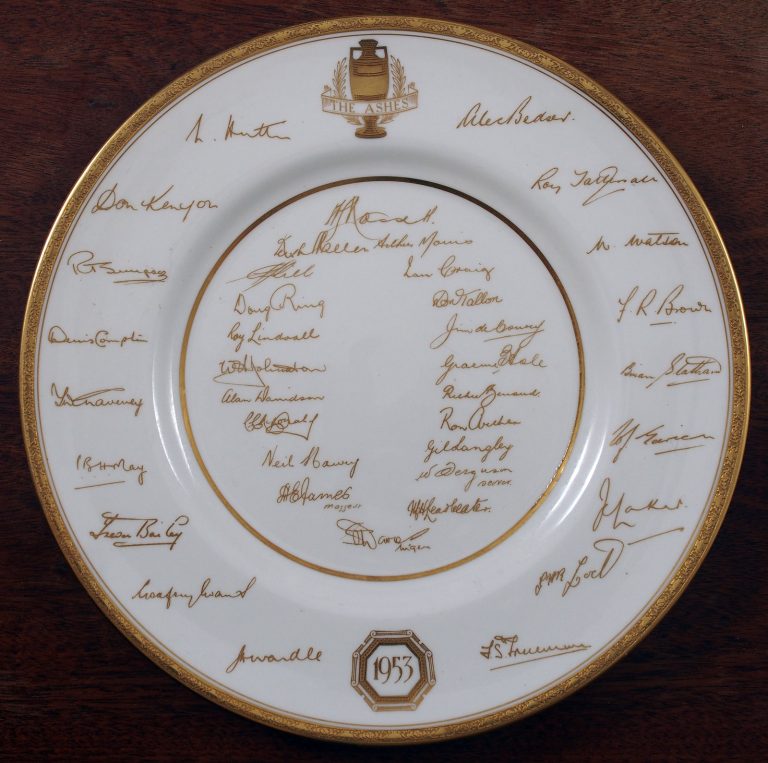 THE ASHES
L. Hutton
Alec Bedser.
Don Kenyon
Roy Tattersall
W. Watson
R T Simpson
F. R. Brown
Denis Compton
Brian Statham
T W Graveney
P.B.H. May
J. C. Laker.
Trevor Bailey
G A R Lock
Godfrey Evans
J H Wardle
F S Trueman
1953
A L Hassett.
Arthur Morris
Ian Craig
J C Hill
Doug Ring
Don Tallon
Ray Lindwall
Jim de Courcy
W A Johnston
Graeme Hole
Alan Davidson
Richie Benaud.
Ron Archer
Neil Harvey
Gil Langley
W Ferguson
scorer.
A E James
masseur